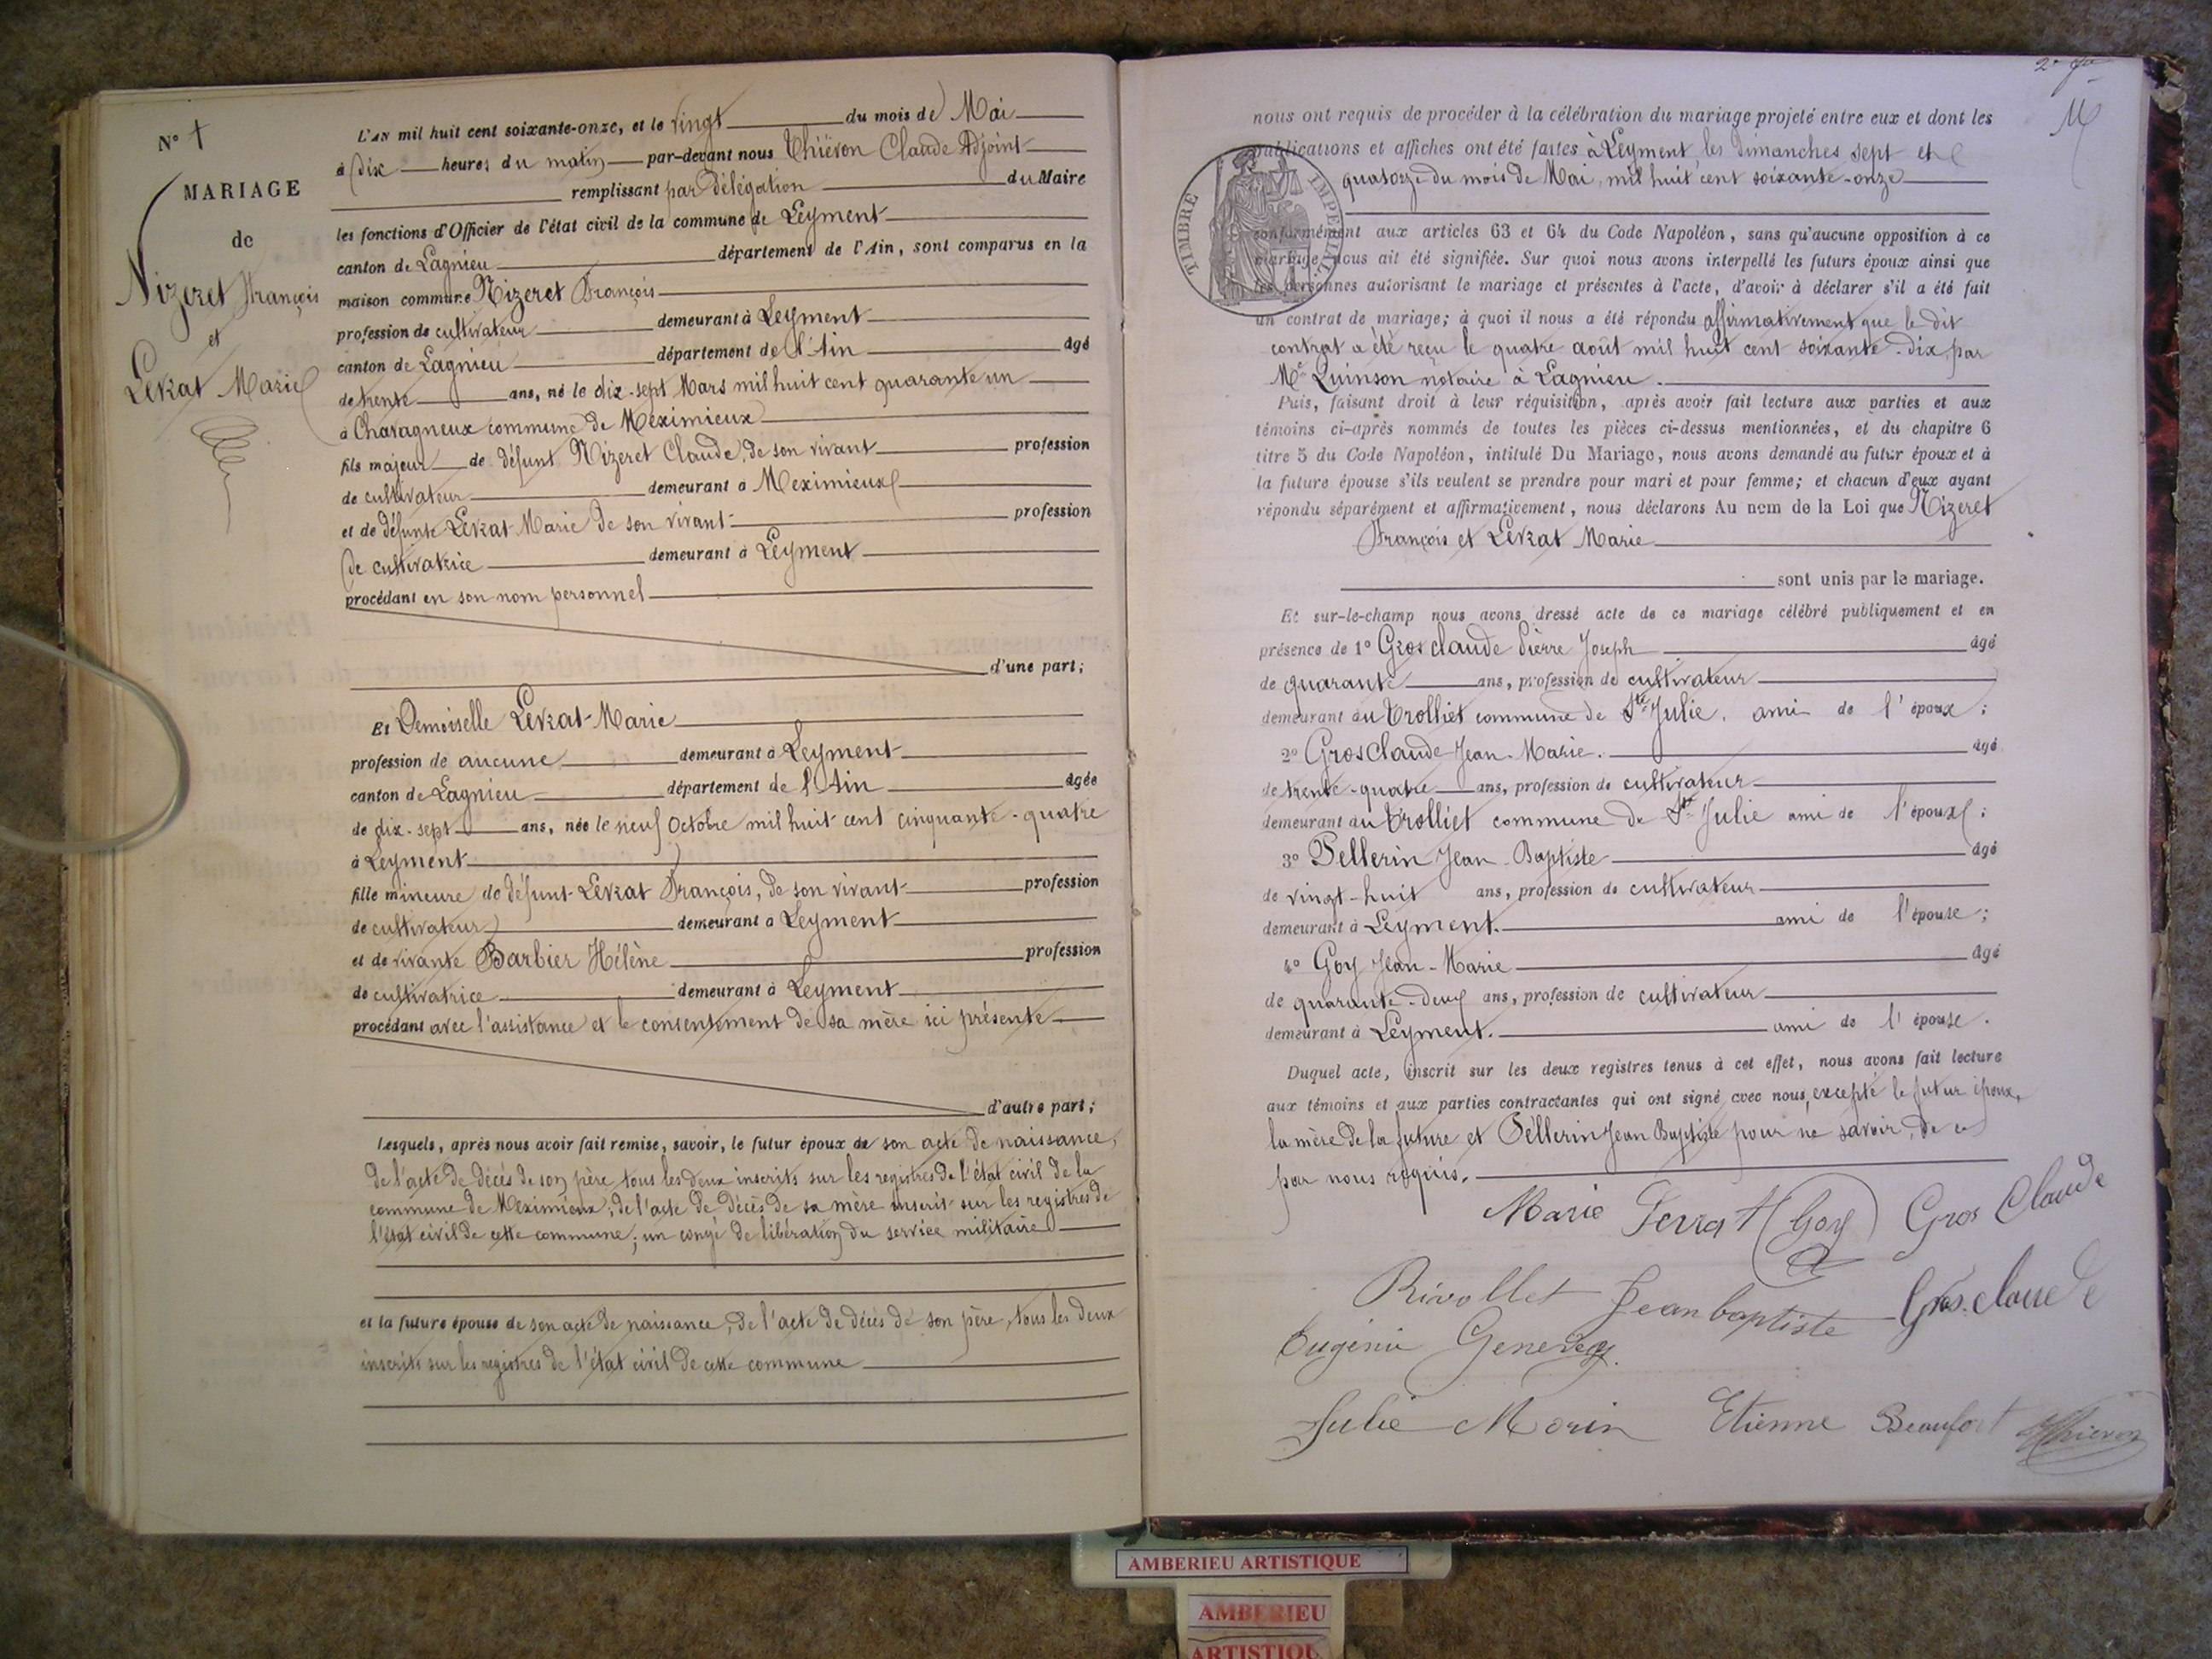 N° 1
MARIAGE
de
Nizeret François
et
Levrat Marie
L'AN mil huit cent soixante-onze, et le vingt du mois de Mai
à dix heures du matin par-devant nous Thiévon Claude Adjoint
remplissant par délégation du Maire
les fonctions d'Officier de l'état civil de la commune de Leyment
canton de Lagnieu département de l'Ain, sont comparus en la
maison commune Nizeret François
profession de cultivateur demeurant à Leyment
canton de Lagnieu département de l'Ain âgé
de trente ans, né le dix-sept Mars mil huit cent quarante un
à Chavagneux commune de Meximieux
fils majeur de défunt Nizeret Claude, de son vivant profession
de cultivateur demeurant à Meximieux
et de défunte Levrat Marie de son vivant profession
de cultivatrice demeurant à Leyment
procédant en son nom personnel
d'une part;
Et Demoiselle Levrat Marie
profession de aucune demeurant à Leyment
canton de Lagnieu département de l'Ain âgée
de dix-sept ans, née le neuf Octobre mil huit cent cinquante-quatre
à Leyment
fille mineure de défunt Levrat François, de son vivant profession
de cultivateur demeurant à Leyment
et de vivante Barbier Hélène profession
de cultivatrice demeurant à Leyment
procédant avec l'assistance et le consentement de sa mère ici présente
d'autre part;
Lesquels, après nous avoir fait remise, savoir, le futur époux de son acte de naissance,
de l'acte de décès de son père, tous les deux inscrits sur les registres de l'état civil de la
commune de Meximieux; de l'acte de décès de sa mère inscrit sur les registres de
l'état civil de cette commune; un congé de libération du service militaire
et la future épouse de son acte de naissance, de l'acte de décès de son père, tous les deux
inscrits sur les registres de l'état civil de cette commune
M
nous ont requis de procéder à la célébration du mariage projeté entre eux et dont les
publications et affiches ont été faites à Leyment, les dimanches sept et
quatorze du mois de Mai, mil huit cent soixante-onze
TIMBRE IMPÉRIAL
conformément aux articles 63 et 64 du Code Napoléon, sans qu'aucune opposition à ce
mariage nous ait été signifiée. Sur quoi nous avons interpellé les futurs époux ainsi que
les personnes autorisant le mariage et présentes à l'acte, d'avoir à déclarer s'il a été fait
un contrat de mariage; à quoi il nous a été répondu affirmativement que le dit
contrat a été reçu le quatre août mil huit cent soixante-dix, par
Me Quinson notaire à Lagnieu.
Puis, faisant droit à leur réquisition, après avoir fait lecture aux parties et aux
témoins ci-après nommés de toutes les pièces ci-dessus mentionnées, et du chapitre 6
titre 5 du Code Napoléon, intitulé Du Mariage, nous avons demandé au futur époux et à
la future épouse s'ils veulent se prendre pour mari et pour femme; et chacun d'eux ayant
répondu séparément et affirmativement, nous déclarons Au nom de la Loi que Nizeret
François et Levrat Marie
sont unis par le mariage.
Et sur-le-champ nous avons dressé acte de ce mariage célébré publiquement et en
présence de 1° Gros claude Pierre Joseph âgé
de quarante ans, profession de cultivateur
demeurant au Trolliet commune de Ste Julie, ami de l'époux;
2° Gros Claude Jean-Marie. âgé
de trente-quatre ans, profession de cultivateur
demeurant au Trolliet commune de Ste Julie ami de l'époux;
3° Pellerin Jean-Baptiste âgé
de vingt-huit ans, profession de cultivateur
demeurant à Leyment. ami de l'épouse;
4° Goy Jean-Marie âgé
de quarante-deux ans, profession de cultivateur
demeurant à Leyment. ami de l'épouse.
Duquel acte, inscrit sur les deux registres tenus à cet effet, nous avons fait lecture
aux témoins et aux parties contractantes qui ont signé avec nous, excepté le futur époux,
la mère de la future et Pellerin Jean Baptiste pour ne savoir, de ce
par nous requis.
Marie Levrat Goy Gros Claude
Rivollet Jean baptiste Gros-claude
Eugénie Genevay
Julie Morin Etienne Beaufort Thiévon
AMBERIEU ARTISTIQUE
AMBERIEU
ARTISTIQUE